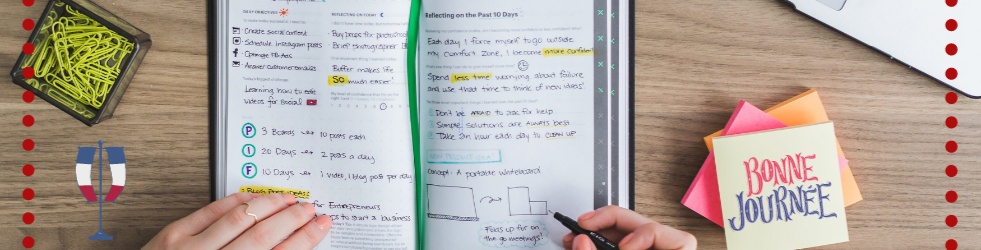 NEXT OBJECTIVES
Create Social content
Schedule Instagram posts
Optimize FB Ads
Answer customer emails
Learning how to edit
videos for Social
P 3 Boards 10 posts each
I 20 Days 2 posts a day
F 10 Days 1 video, 1 blog post per day
Blog Post Ideas:
for Entrepreneurs
to start a business
REFLECTING ON TODAY
Buy props for photoshoot
Brief photographer
Buffer makes life
SO much easier!
Reflecting on the Past 10 Days
Each day I force myself to go outside
my comfort zone, I become more confident
Spend less time worrying about failure
and use that time to think of new ideas!
Don't be AFRAID to ask for help
Simple solutions are ALWAYS best
Take an hour each day to CLEAN UP
Concept: A portable whiteboard!
Folds up for on
the go meetings!
BONNE
JOURNÉE